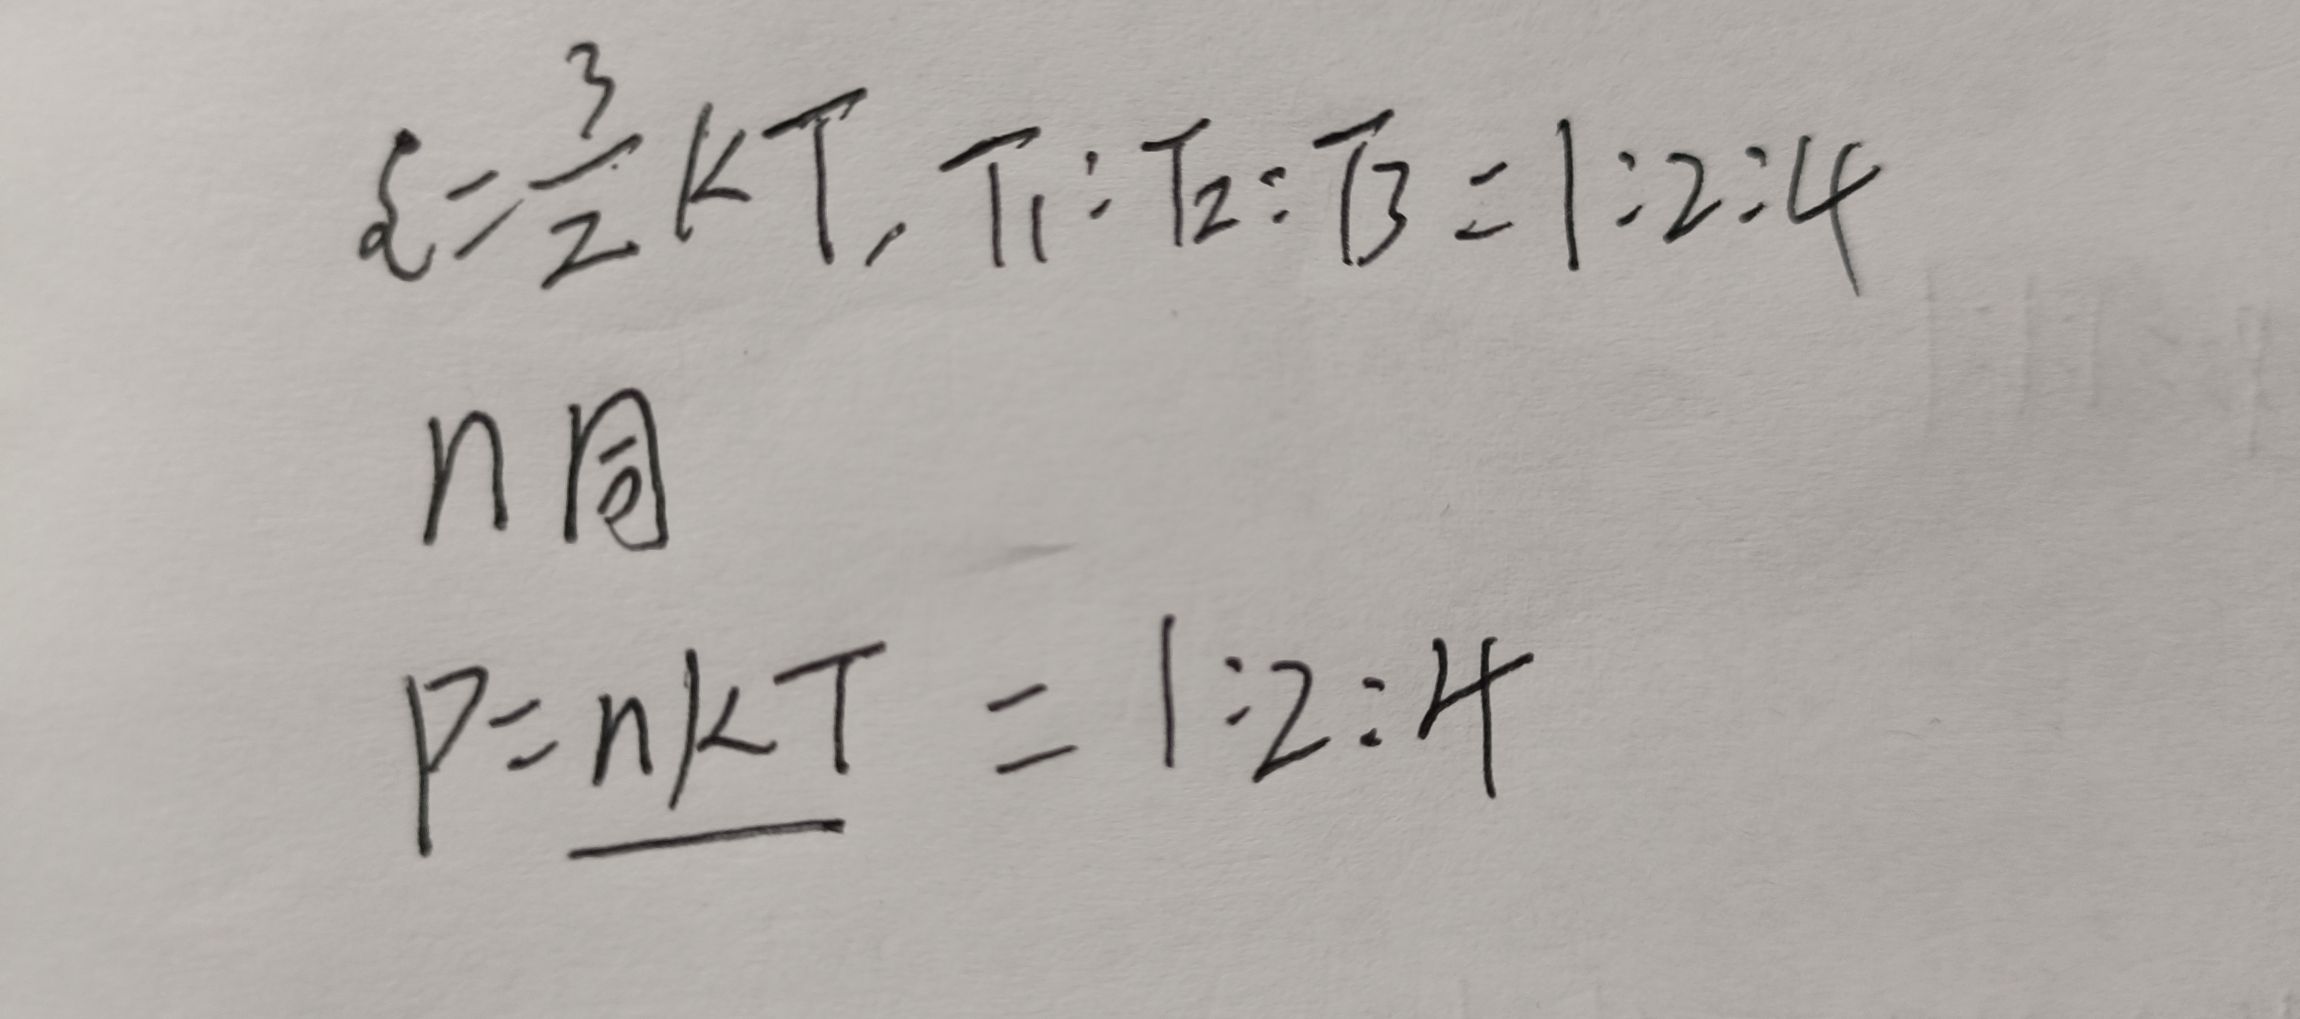 ε=3/2 kT, T1:T2:T3=1:2:4
n同
P=nkT =1:2:4